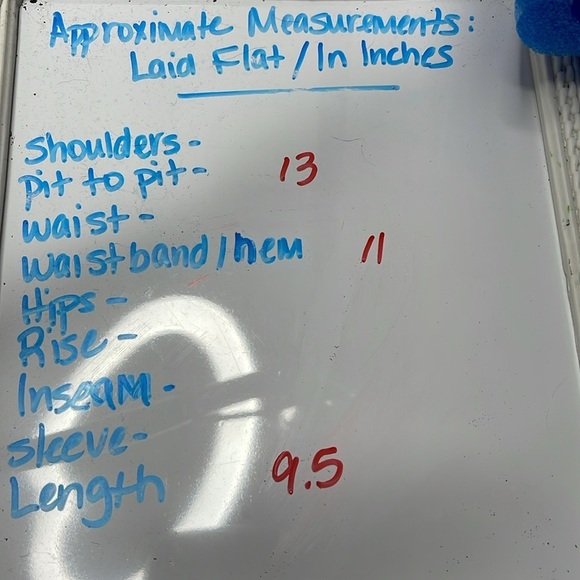 Approximate Measurements:
Laid Flat / In Inches
Shoulders-
pit to pit- 13
waist-
waistband/hem 11
Hips-
Rise-
Inseam-
sleeve-
Length 9.5